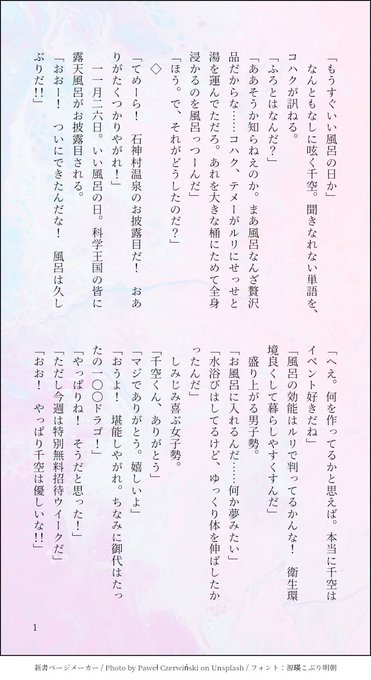 「もうすぐいい風呂の日か」
　なんともなしに呟く千空。聞きなれない単語を、
コハクが訊ねる。
「ふろとはなんだ？」
「ああそうか知らねえのか。まあ風呂なんざ贅沢
品だからな……コハク、テメーがルリにせっせと
湯を運んでただろ。あれを大きな桶にためて全身
浸かるのを風呂っつーんだ」
「ほう。で、それがどうしたのだ？」
◇
「てめーら！　石神村温泉のお披露目だ！　おあ
りがたくつかりやがれ！」
　一一月二六日。いい風呂の日。科学王国の皆に
露天風呂がお披露目される。
「おおー！　ついにできたんだな！　風呂は久し
ぶりだ!!」
「へえ。何を作ってるかと思えば。本当に千空は
イベント好きだね」
「風呂の効能はルリで判ってるかんな！　衛生環
境良くして暮らしやすくすんだ」
　盛り上がる男子勢。
「お風呂に入れるんだ……何か夢みたい」
「水浴びはしてるけど、ゆっくり体を伸ばしたか
ったんだ」
　しみじみ喜ぶ女子勢。
「千空くん、ありがとう」
「マジでありがとう。嬉しいよ」
「おうよ！　堪能しやがれ。ちなみに御代はたっ
たの一〇〇ドラゴ！」
「やっぱりね！　そうだと思った！」
「ただし今週は特別無料招待ウイークだ」
「おお！　やっぱり千空は優しいな!!」
1
新書ページメーカー / Photo by Paweł Czerwiński on Unsplash / フォント：源暎こぶり明朝